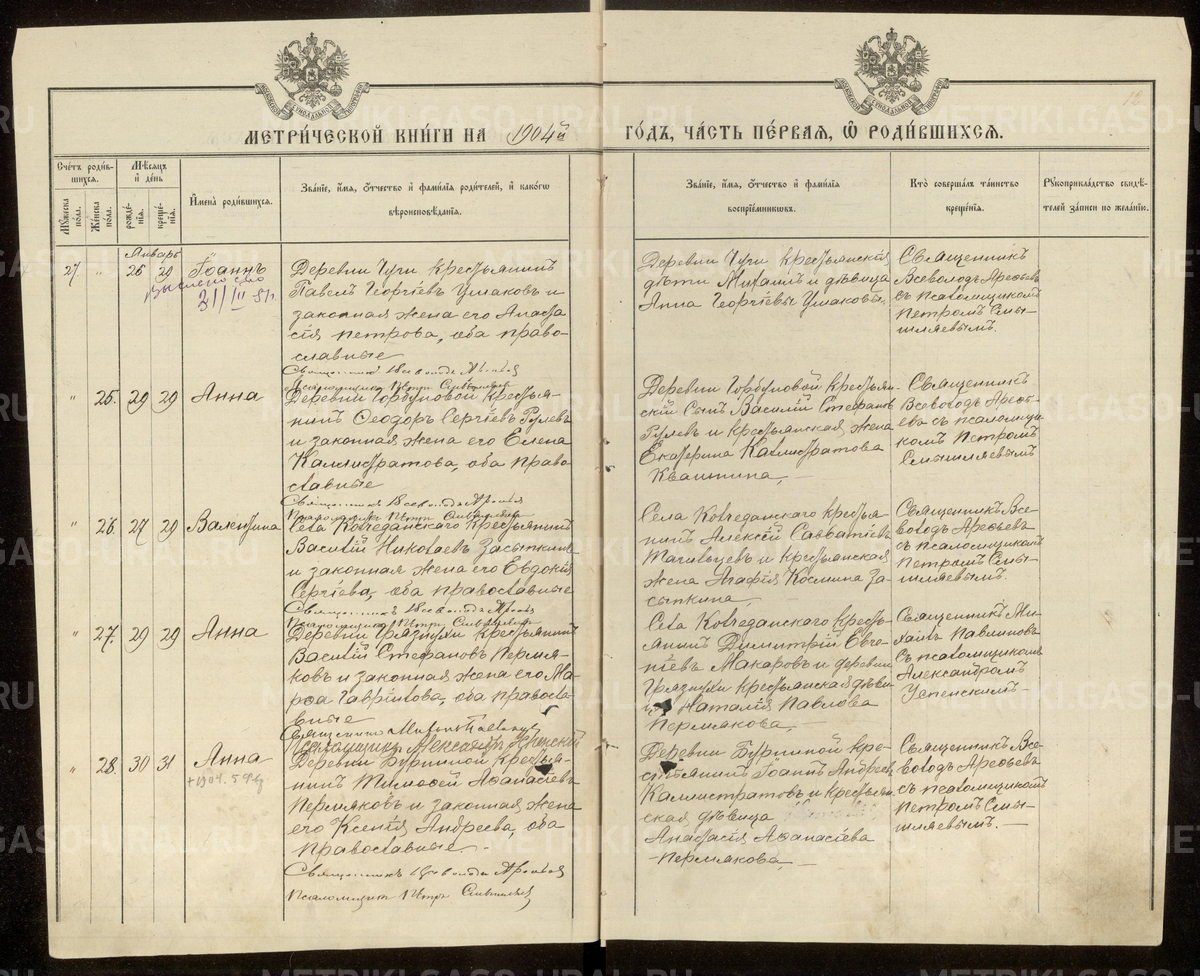 МЕТРИ́ЧЕСКОЙ КНИ́ГИ НА 1904й ГО́ДЪ, ЧА́СТЬ ПЕ́РВАЯ, Ѡ РОДИ́ВШИХСЯ.
Сче́тъ роди́в-
шихся.
Мѣ́сяцъ
и҆ де́нь
Му́жеска по́ла.
Же́нска по́ла.
рожде́-
нїѧ.
креще́-
нїѧ.
И҆мена̀ роди́вшихся.
Зва́нїе, и҆́мя, ѻ҆́тчество и҆ фами́лїя роди́телей, и҆ како́гѡ
вѣроисповѣ́данїѧ.
Зва́нїе, и҆́мя, ѻ҆́тчество и҆ фами́лїя
воспрїе́мникѡвъ.
Кто̀ соверша́лъ та́инство
креще́нїѧ.
Рꙋкоприкла́дство свидѣ́-
телей за́писи по жела́нїю.
Январь
27 " 26 29 Іоаннъ
31/III-51г.
Деревни Чуги крестьянинъ
Павелъ Георгіевъ Ушаковъ и
законная жена его Анаста
сія Петрова, оба право-
славные
Священникъ Всеволодъ Арефьев
Псаломщикъ Петръ Смышляевъ
Деревни Чуги крестьянскія
дѣти Михаилъ и дѣвица
Анна Георгіевы Ушаковы
Священникъ
Всеволодъ Арефьевъ
съ псаломщикомъ
Петромъ Смы-
шляевымъ.
" 25. 29 29 Анна
Деревни Горбуновой крестья-
нинъ Ѳеодоръ Сергіевъ Гулевъ
и законная жена его Елена
Каллистратова, оба право-
славные
Священникъ Всеволодъ Арефьев
Псаломщикъ Петръ Смышляевъ
Деревни Горбуновой крестьян-
скій сынъ Василій Стефановъ
Гулевъ и крестьянская жена
Екатерина Каллистратова
Квашнина,
Священникъ
Всеволодъ Арефь-
евъ съ псаломщи-
комъ Петромъ
Смышляевымъ
" 26. 27 29 Валентина
Села Колчеданскаго крестьянинъ
Василій Николаевъ Засыпкинъ
и законная жена его Евдокія
Сергіева, оба православные
Священникъ Всеволодъ Арефьев
Псаломщикъ Петръ Смышляевъ
Села Колчеданскаго крестья-
нинъ Алексій Савватіевъ
Тагильцевъ и крестьянская
жена Агафія Космина За-
сыпкина,
Священникъ Все-
володъ Арефьевъ
съ псаломщикомъ
Петромъ Смы-
шляевымъ.
" 27. 29 29 Анна
Деревни Грязнухи крестьянинъ
Василій Стефановъ Пермя-
ковъ и законная жена его Ма-
рѳа Гавріилова, оба православ-
ные
Священникъ Михаилъ Павлиновъ
Псаломщикъ Александръ Успенскій
Села Колчеданскаго кресть-
янинъ Димитрій Евге-
ніевъ Макаровъ и деревни
Грязнухи крестьянская дѣви-
ца Наталія Павлова
Пермякова,
Священникъ Ми-
хаилъ Павлиновъ
съ псаломщикомъ
Александромъ
Успенскимъ
" 28. 30 31 Анна
+1904.
Деревни Бурниной крестья-
нинъ Тимоѳей Аѳанасіевъ
Пермяковъ и законная жена
его Ксенія Андреева, оба
православные
Священникъ Всеволодъ Арефьев
Псаломщикъ Петръ Смышляевъ
Деревни Бурниной кре-
стьянинъ Іоаннъ Андреевъ
Каллистратовъ и крестьян-
ская дѣвица
Анастасія Аѳанасіева
Пермякова,
Священникъ Все-
володъ Арефьевъ
съ псаломщикомъ
Петромъ Смы-
шляевымъ.
METRIKI.GASO-URAL.RU